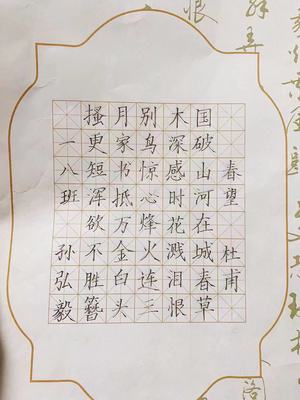 春望 杜甫
国破山河在城春草
木深感时花溅泪恨
别鸟惊心烽火连三
月家书抵万金白头
搔更短浑欲不胜簪
一八班 孙弘毅
恨
洛